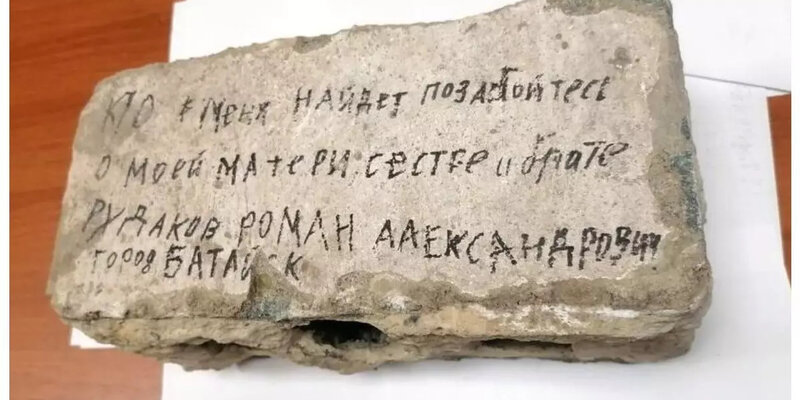 КТО меня НАЙДЕТ ПОЗАБОЙТЕСЬ
О МОЕЙ МАТЕРИ СЕСТРЕ и брате
РУДАКОВ РОМАН АЛЕКСАНДРОВИЧ
город БАТАЙСК